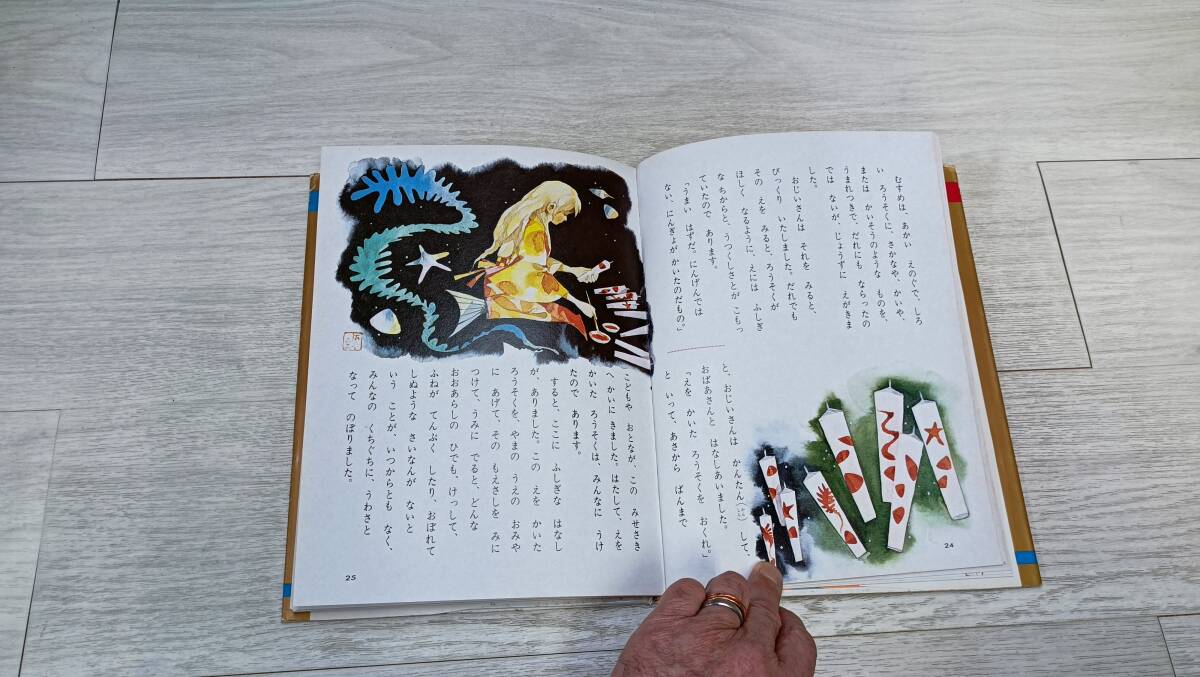 むすめは、あかい えのぐで、しろ
い ろうそくに、さかなや、かいや、
または かいそうのような ものを、
うまれつきで、だれにも ならったの
では ないが、じょうずに えがきま
した。
おじいさんは それを みると、
びっくり いたしました。だれでも
その えを みると、ろうそくが
ほしく なるように、えには ふしぎ
な ちからと、うつくしさとが こもっ
ていたので あります。
「うまい はずだ。にんげんでは
ない、にんぎょが かいたのだもの。」
と、おじいさんは かんたん して、
おばあさんと はなしあいました。
「えを かいた ろうそくを おくれ。」
と いって、あさから ばんまで
24
こどもや おとなが、この みせさき
へ かいに きました。はたして、えを
かいた ろうそくは、みんなに うけ
たので あります。
すると、ここに ふしぎな はなし
が、ありました。この えを かいた
ろうそくを、やまの うえの おみや
に あげて、その もえさしを みに
つけて、うみに でると、どんな
おおあらしの ひでも、けっして、
ふねが てんぷく したり、おぼれて
しぬような さいなんが ないと
いう ことが、いつからとも なく、
みんなの くちぐちに、うわさと
なって のぼりました。
25